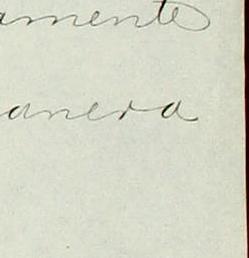 amente
anera